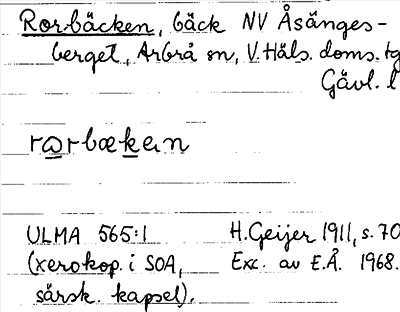 Rorbäcken, bäck NV Åsänges-
berget, Arbrå sn, V. Häls. doms. tg
Gävl. l
rorbæken
ULMA 565:1 H. Geijer 1911, s. 70
(xerokop. i SOA, Exc. av E.Å. 1968.
särsk. kapsel).